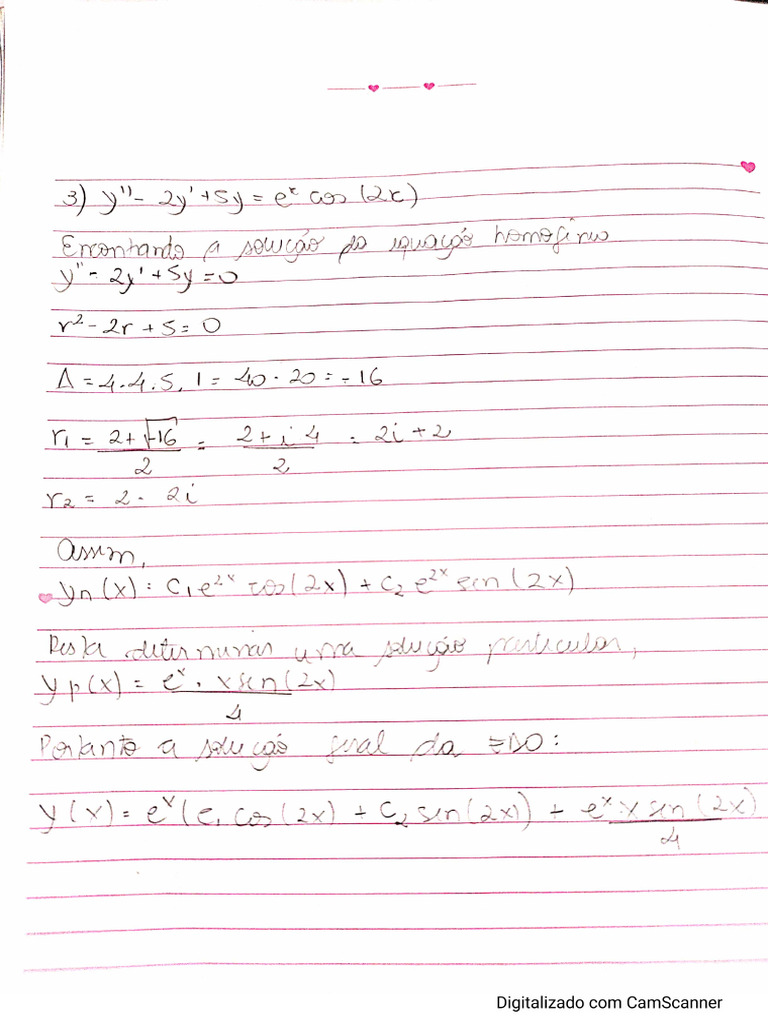 3) y'' - 2y' + 5y = e^x cos (2x)
Encontando a solução da equação homogênea
y'' - 2y' + 5y = 0
r² - 2r + 5 = 0
Δ = 4.4.5.1 = 40 - 20 = -16
r₁ = (2+√-16)/2 = (2+i4)/2 = 2i + 2
r₂ = 2 - 2i
Assim,
yn(x) = C₁e^{2x} cos(2x) + C₂ e^{2x} sen (2x)
Resta determinar uma solução particular,
yp(x) = (e^x . x sen(2x))/4
Portanto a solução geral da EDO:
y(x) = e^x (C₁ cos (2x) + C₂ sen(2x)) + (e^x . x sen (2x))/4
Digitalizado com CamScanner